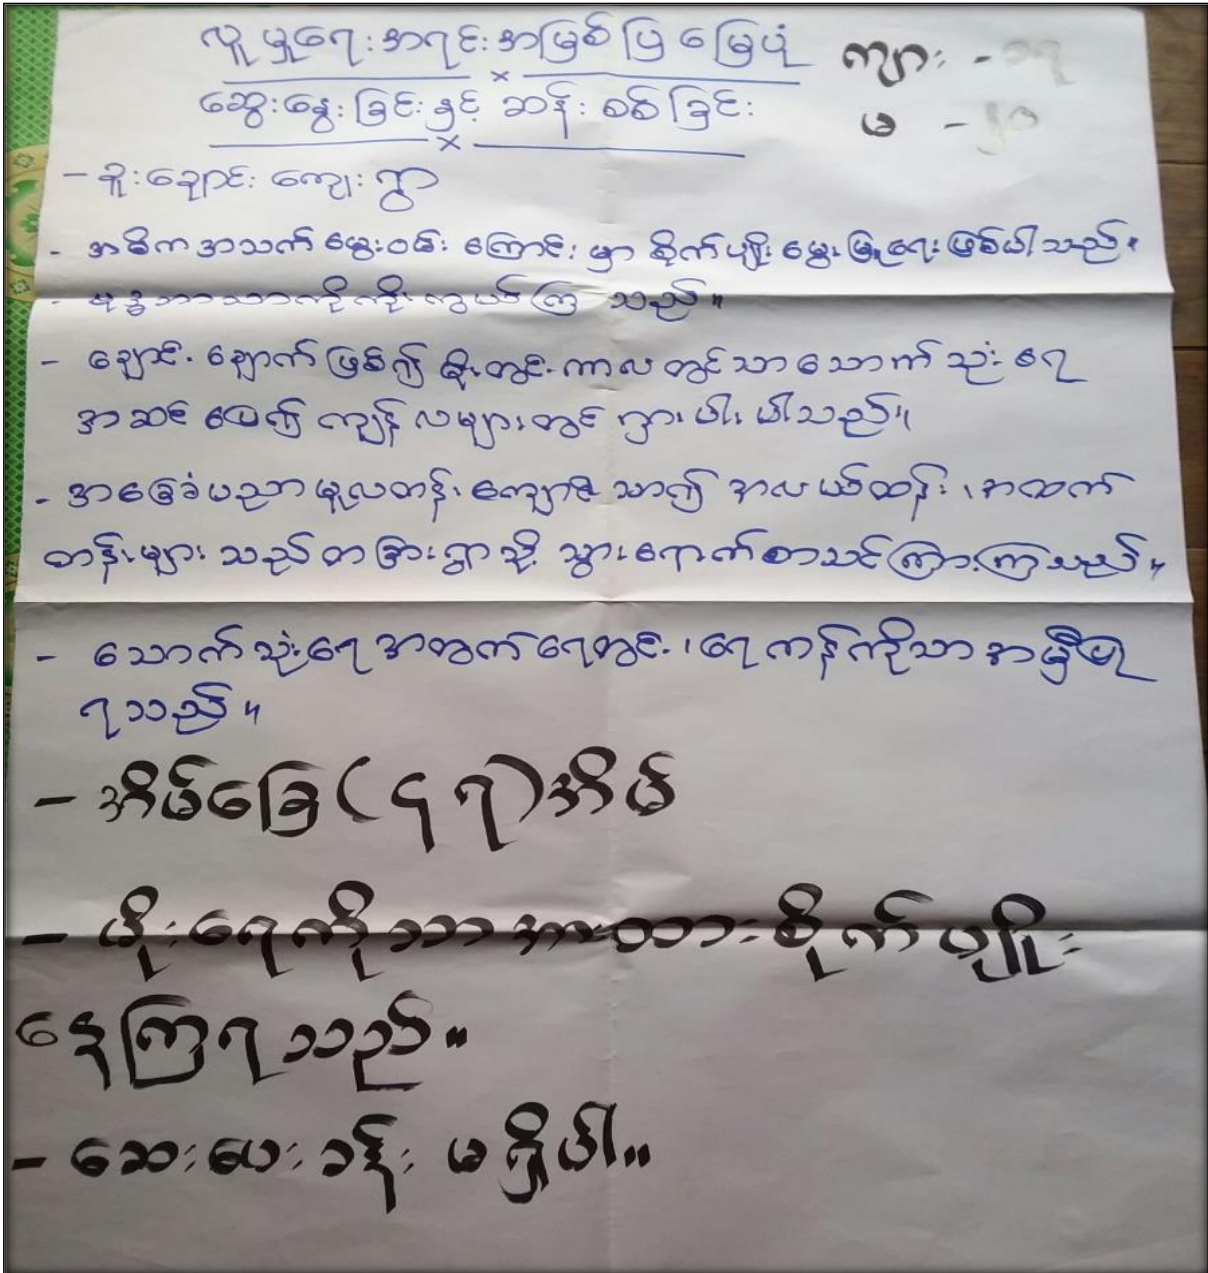 လူမှုရေးအရင်းအမြစ်ပြမြေပုံ
ကျား -
ဆွေးနွေးခြင်းနှင့် ဆန်းစစ်ခြင်း
မ - ၂၀
- စူးချောင်းကျေးရွာ
- အဓိကအသက်မွေးဝမ်းကြောင်းမှာ စိုက်ပျိုးမွေးမြူရေးဖြစ်ပါသည်။
- ဗုဒ္ဓဘာသာကိုကိုးကွယ်ကြသည်။
- ချောင်းချောက်ဖြစ်၍ မိုးတွင်းကာလတွင်သာသောက်သုံးရေ
အဆင်ပြေ၍ ကျန်လများတွင် ရှားပါးပါသည်။
- အခြေခံပညာမူလတန်းကျောင်းသာ၍ အလယ်တန်း၊ အထက်
တန်းများသည်တခြားရွာသို့ သွားရောက်စာသင်ကြားကြသည်။
- သောက်သုံးရေအတွက်ရေတွင်း၊ ရေကန်ကိုသာအမှီပြု
ရသည်။
- အိမ်ခြေ(၄၇)အိမ်
- မိုးရေကိုသာအားထားစိုက်ပျိုး
နေကြရသည်။
- ဆေးပေးခန်း မရှိပါ။